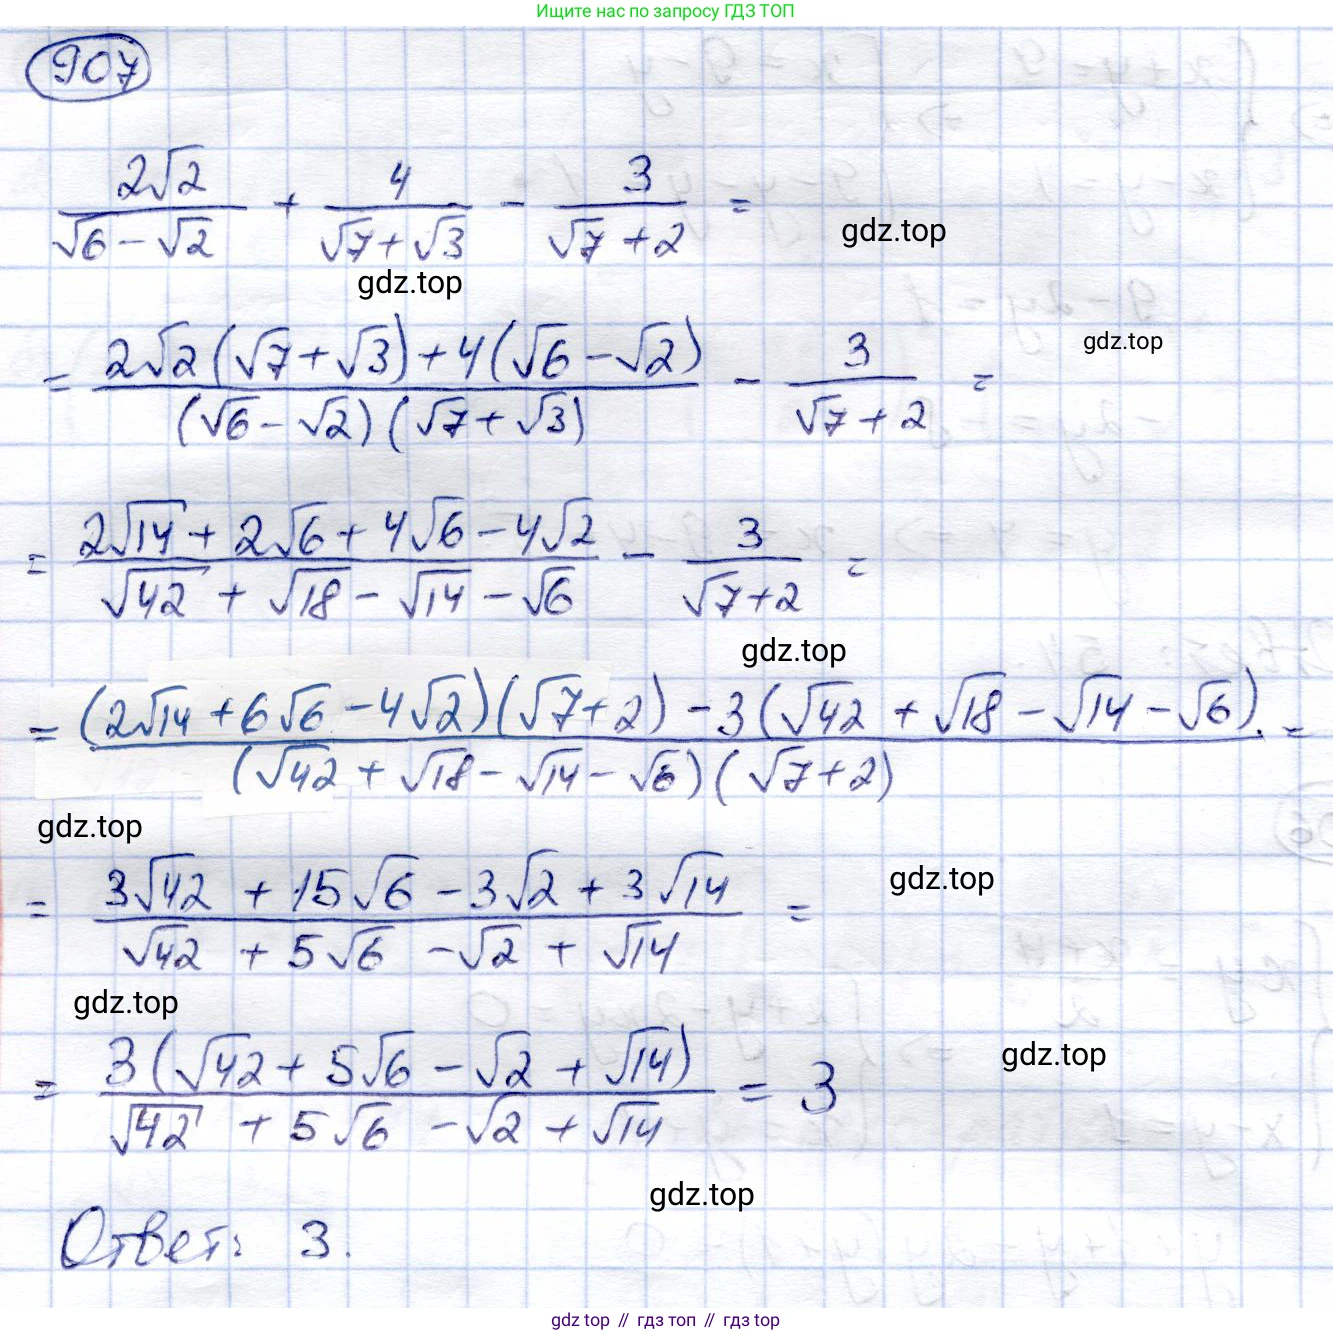 Ищите нас по запросу ГДЗ ТОП
907
2√2/(√6 − √2) + 4/(√7 + √3) − 3/(√7 + 2) =
gdz.top
gdz.top
= (2√2(√7 + √3) + 4(√6 − √2))/((√6 − √2)(√7 + √3)) − 3/(√7 + 2) =
gdz.top
= (2√14 + 2√6 + 4√6 − 4√2)/(√42 + √18 − √14 − √6) − 3/(√7 + 2) =
gdz.top
= ((2√14 + 6√6 − 4√2)(√7 + 2) − 3(√42 + √18 − √14 − √6))/((√42 + √18 − √14 − √6)(√7 + 2)) =
gdz.top
= (3√42 + 15√6 − 3√2 + 3√14)/(√42 + 5√6 − √2 + √14) =
gdz.top
gdz.top
= 3(√42 + 5√6 − √2 + √14)/(√42 + 5√6 − √2 + √14) = 3
gdz.top
gdz.top
Ответ: 3.
gdz top // гдз топ // гдз top